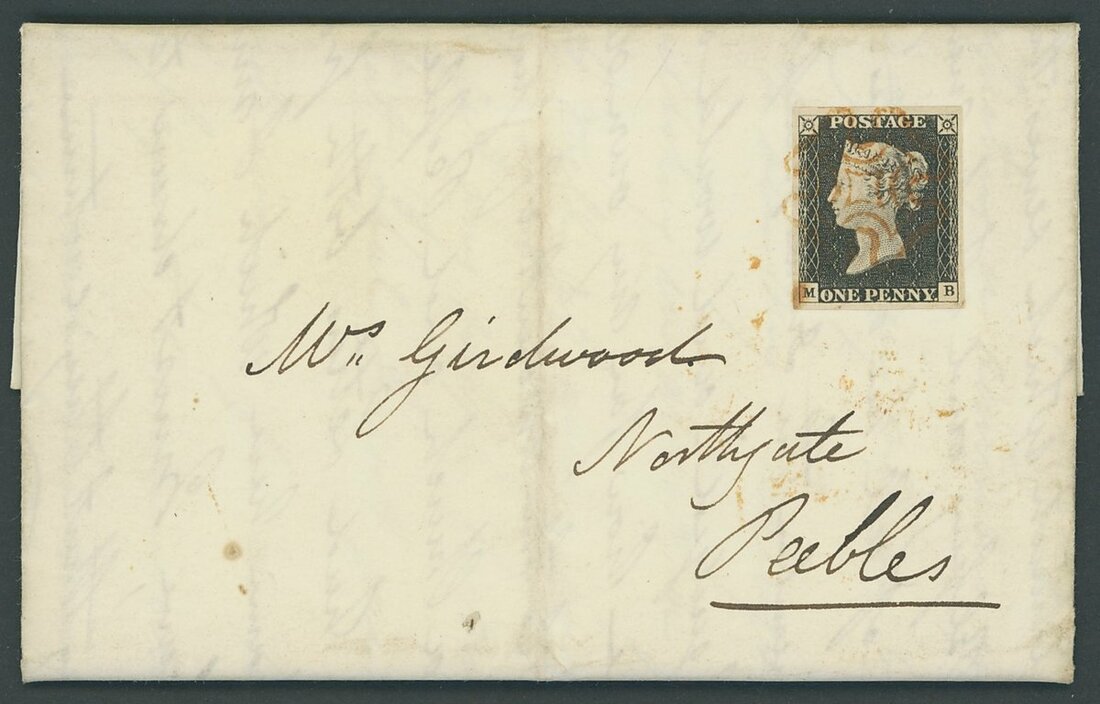 POSTAGE
M ONE PENNY B
Mrs Girdwood
Northgate
Peebles